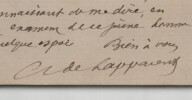 connaissant de me dire, en
examen de ce jeune homme
quelque espoir Bien à vous
A de Lapparent